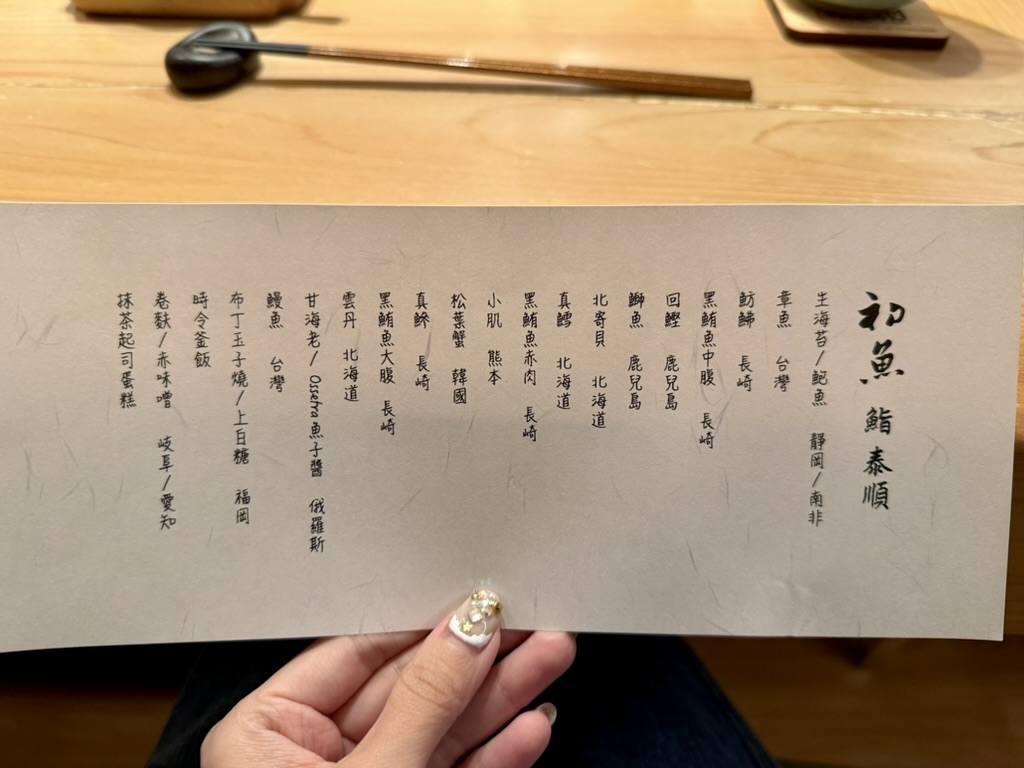 初魚 鮨 泰順
生海苔/鮑魚 靜岡/南非
章魚 台灣
魴鮄 長崎
黑鮪魚中腹 長崎
回鰹 鹿兒島
鰤魚 鹿兒島
北寄貝 北海道
真鱈 北海道
黑鮪魚赤肉 長崎
小肌 熊本
松葉蟹 韓國
真鰺 長崎
黑鮪魚大腹 長崎
雲丹 北海道
甘海老/Ossetra魚子醬 俄羅斯
鰻魚 台灣
布丁玉子燒/上白糖 福岡
時令釜飯
卷麩/赤味噌 岐阜/愛知
抹茶起司蛋糕